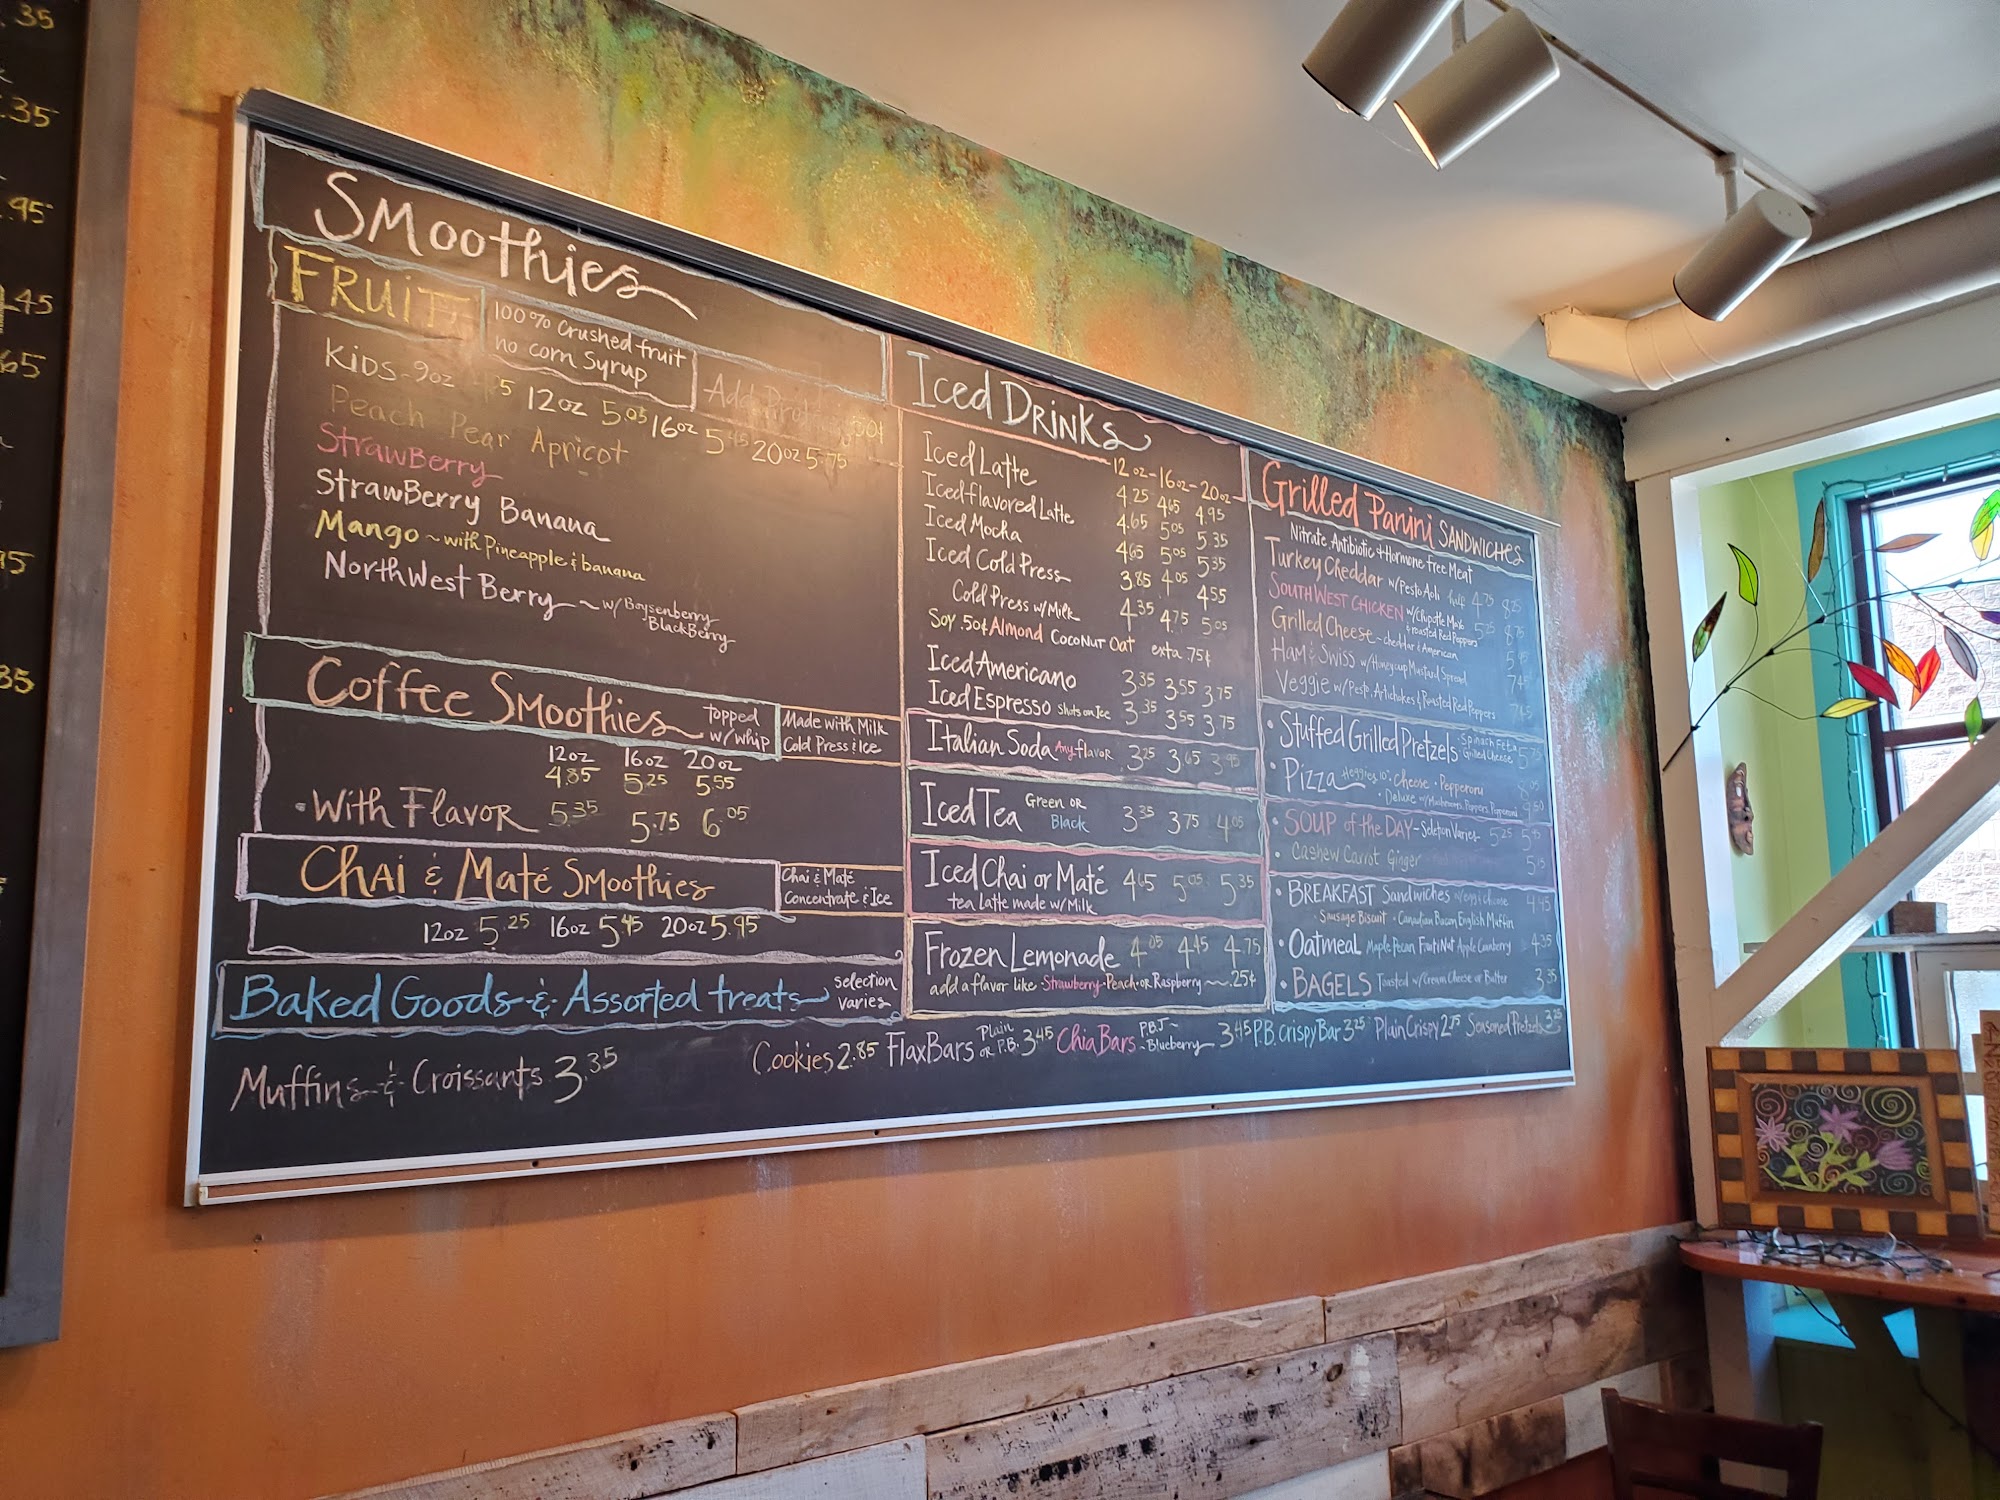 Smoothies
FRUIT
100% crushed fruit
no corn syrup
Add Protein .50¢
KIDS - 9oz 12oz 5.05 16oz 5.45 20oz 5.75
Peach Pear Apricot
StrawBerry
StrawBerry Banana
Mango ~ with Pineapple & banana
NorthWest Berry ~ w/ Boysenberry
BlackBerry
Coffee Smoothies topped
w/ whip
Made with Milk
Cold Press & Ice
12oz 16oz 20oz
4.85 5.25 5.55
• With Flavor 5.35 5.75 6.05
Chai & Maté Smoothies
Chai & Maté
Concentrate & Ice
12oz 5.25 16oz 5.45 20oz 5.95
Baked Goods & Assorted treats selection
varies
Muffins & Croissants 3.35
Cookies 2.85 FlaxBars Plain or P.B. 3.45 ChiaBars P.B.J ~ Blueberry 3.45 P.B. CrispyBar 3.25 Plain Crispy 2.75 Seasoned Pretzels 3.25
Iced Drinks
12oz - 16oz - 20oz
Iced Latte 4.25 4.65 4.95
Iced flavored Latte 4.65 5.05 5.35
Iced Mocha 4.65 5.05 5.35
Iced Cold Press 3.85 4.05 4.55
Cold Press w/ Milk 4.35 4.75 5.05
Soy .50¢ Almond Coconut Oat exta .75¢
Iced Americano 3.35 3.55 3.75
Iced Espresso Shots on Ice 3.35 3.55 3.75
Italian Soda Any flavor 3.25 3.65 3.95
Iced Tea Green or
Black 3.35 3.75 4.05
Iced Chai or Maté 4.65 5.05 5.35
tea Latte made w/ Milk
Frozen Lemonade 4.05 4.45 4.75
add a flavor like Strawberry • Peach • or Raspberry .25¢
Grilled Panini Sandwiches
Nitrate, Antibiotic & Hormone free Meat
Turkey Cheddar w/ Pesto Aoli half 4.75 8.25
Southwest Chicken w/ Chipotle Mayo
& roasted Red Peppers 5.25 8.75
Grilled Cheese ~ cheddar & American 5.95
Ham & Swiss w/ Honeycup Mustard Spread 7.45
Veggie w/ Pesto, Artichokes & Roasted Red Peppers 7.45
• Stuffed Grilled Pretzels • Spinach Feta
• Grilled Cheese 5.75
• Pizza • Cheese • Pepperoni 8.05
• Deluxe w/ Mushrooms, Peppers, Pepperoni 9.50
• Soup of the Day ~ Seletion Varies 5.25 5.95
• Cashew Carrot Ginger
• Breakfast Sandwiches w/ egg & cheese 4.45
• Sausage Biscuit • Canadian Bacon English Muffin
• Oatmeal Maple Pecan Fruit & Nut Apple Cranberry 4.35
• Bagels Toasted w/ Cream Cheese or Butter 3.35
.35
.35
.95
.45
.65
.35